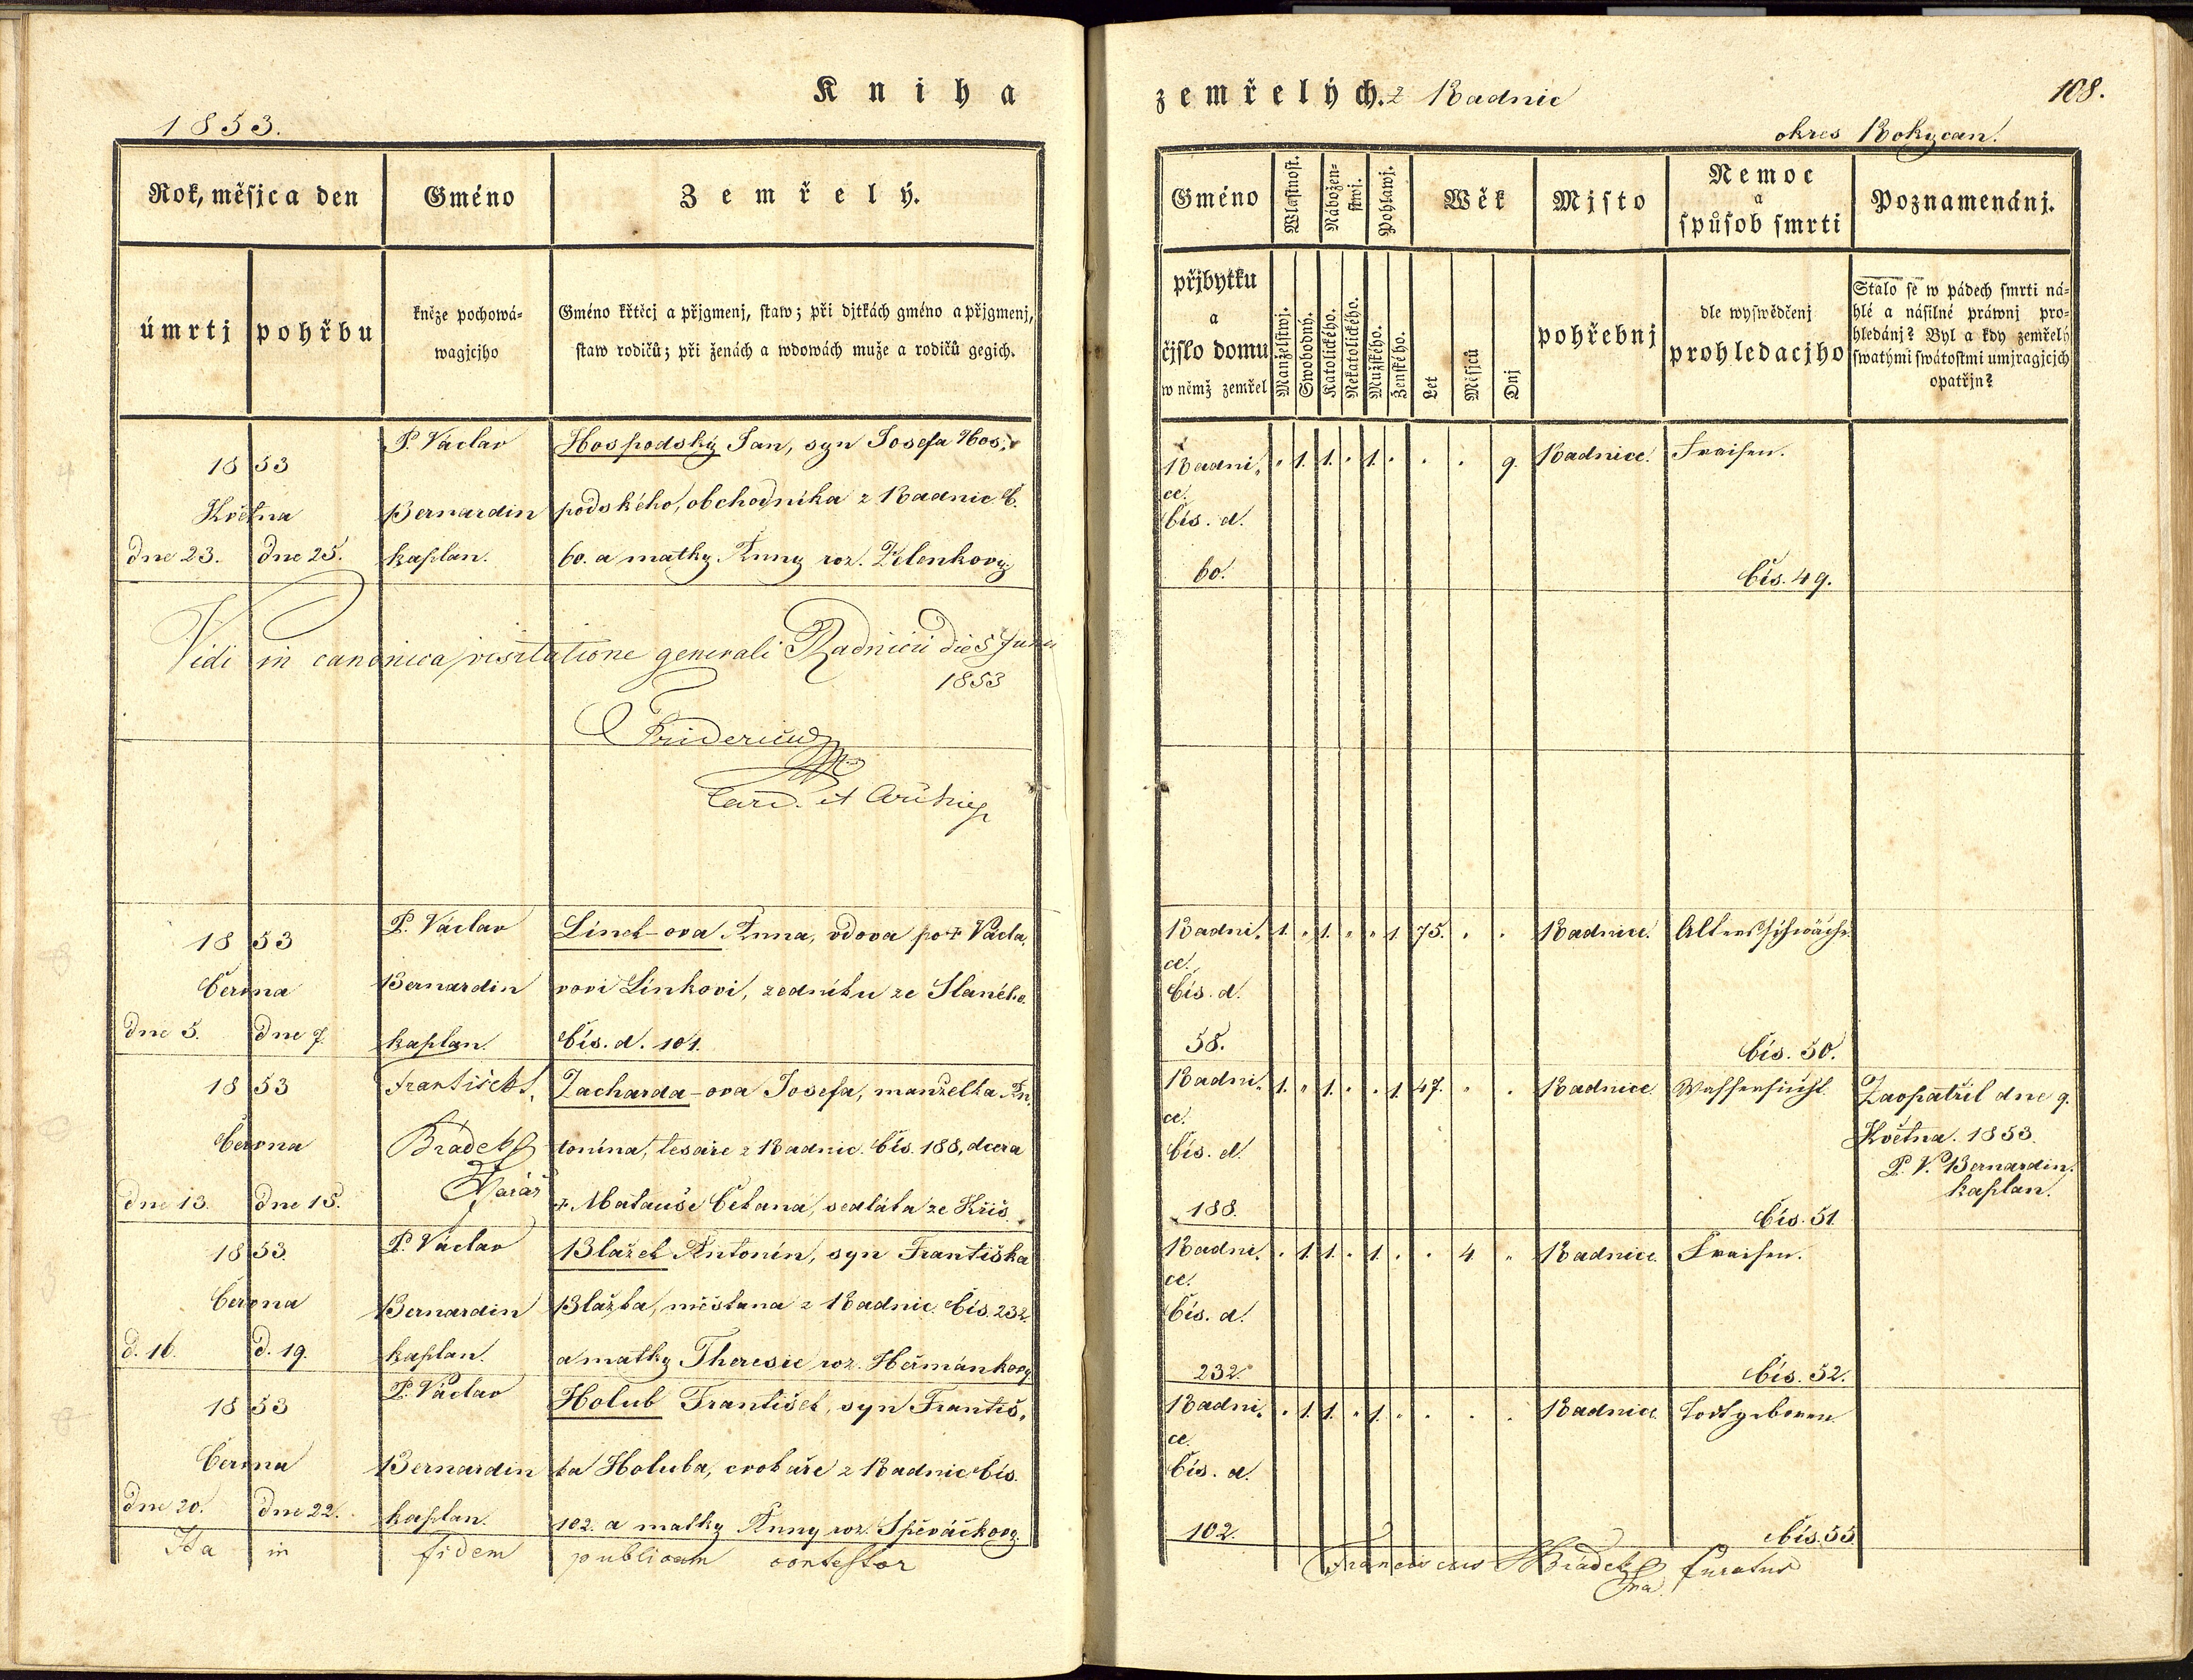 Kniha
zemřelých. z Radnic
108.
1853.
okres Rokycan.
Rok, měsjc a den
Gméno
Zemřelý.
úmrtj
pohřbu
kněze pochowá-
wagjcjho
Gméno křtěcj a přjgmenj, staw; při djtkách gméno a přjgmenj,
staw rodičů; při ženách a wdowách muže a rodičů gegich.
Gméno
Wlastnost.
Nábožen-
stwj.
Pohlawj.
Wěk
Mjsto
Nemoc
a
spůsob smrti
Poznamenánj.
přjbytku
a
čjslo domu
w němž zemřel
Manželstwj.
Swobodný.
Katolického.
Nekatolického.
Mužského.
Ženského.
Let
Měsjců
Dnj
pohřebnj
dle wyswědčenj
prohledacjho
Stalo se w pádech smrti ná-
hlé a násilné práwnj pro-
hledánj? Byl a kdy zemřelý
swatými swátostmi umjragjcjch
opatřjn?
1853
Května
dne 23. dne 25.
P. Václav
Bernardin
kaplan.
Hospodský Jan, syn Josefa Hos-
podského, obchodníka z Radnic č.
60. a matky Anny roz. Zelenkovy
Radni-
ce.
Čís. d.
60.
" 1. 1. " 1. " . . 9. Radnice. Fraisen.
Čís. 49.
Vidi in canonica visitatione generali Radnicii die 5 Junii
1853
Fridericus
Card. et Archiep
1853
Června
dne 5. dne 7.
P. Václav
Bernardin
kaplan.
Línek-ova Anna, vdova po † Václa-
vovi Línkovi, zedníku ze Slaného.
Čís. d. 101.
Radni-
ce.
Čís. d.
58.
1. " 1. " " 1. 75. . . Radnice. Altersschwäche.
Čís. 50.
1853
Června
dne 13. dne 15.
František
Brádek
Farář
Zacharda-ova Josefa, manželka An-
tonína, tesaře z Radnic. Čís. 188, dcera
† Matauše Čekana, sedláka ze Kříš.
Radni-
ce.
Čís. d.
188.
1. " 1. " . 1. 47. " . Radnice. Wassersucht.
Čís. 51.
Zaopatřil dne 9.
Května. 1853.
P. V. Bernardin.
kaplan.
1853.
Června
d. 16. d. 19.
P. Václav
Bernardin
kaplan.
Blažek Antonín, syn Františka
Blažka, měšťana z Radnic. Čís. 232.
a matky Theresie roz. Heřmánkovy
Radni-
ce.
Čís. d.
232.
" 1. 1. " 1. . . 4 " Radnice. Fraisen.
Čís. 52.
1853
Června
dne 20. dne 22.
P. Václav
Bernardin
kaplan.
Holub František, syn Františ-
ka Holuba, cvokaře z Radnic čís.
102. a matky Anny roz. Spěváčkovy.
Radni-
ce.
Čís. d.
102.
" 1. 1. " 1. " . . . Radnice. Todtgeboren.
Čís. 53.
Ita in fidem publicam contestor
Franciscus Brádek
mp.
Curatus